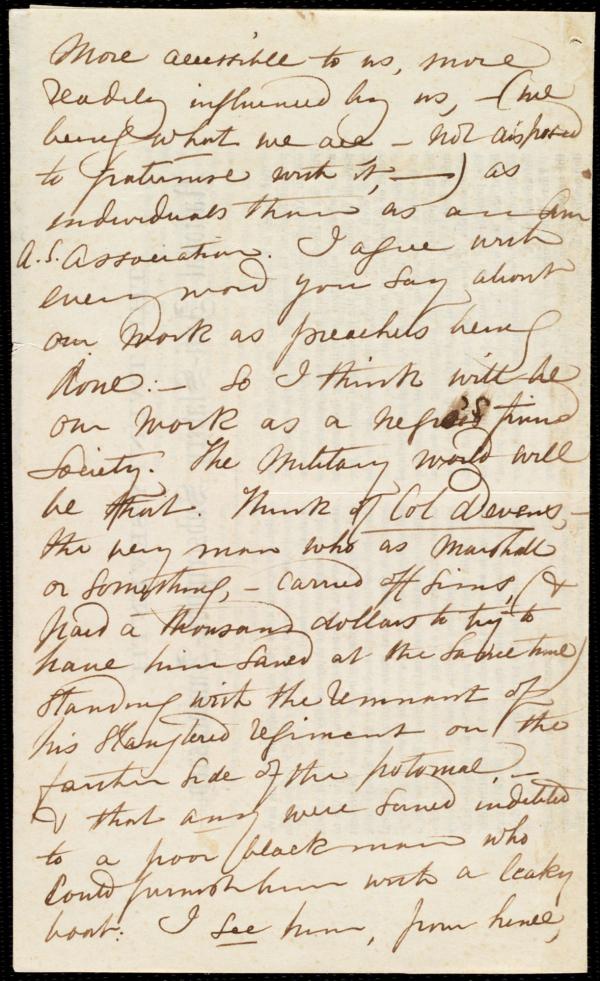 More accessible to us, more
readily influenced by us, – (we
being what we are – not disposed
to patronise with it, —) as
individuals than as an Am
A.S. Association. I agree with
every word you say about
our work as preachers being
done: – so I think will be
our work as a negro's friend
Society. The Military world will
be that. Think of Col Devens, –
the very man who as Marshall
or something, – carried off Sims, (&
paid a thousand dollars to try to
have him saved at the same time)
standing with the remnant of
his slaughtered regiment on the
farther side of the potomac, –
& that any were saved indebted
to a poor black man who
could furnish him with a leaky
boat: I see him, from hence,